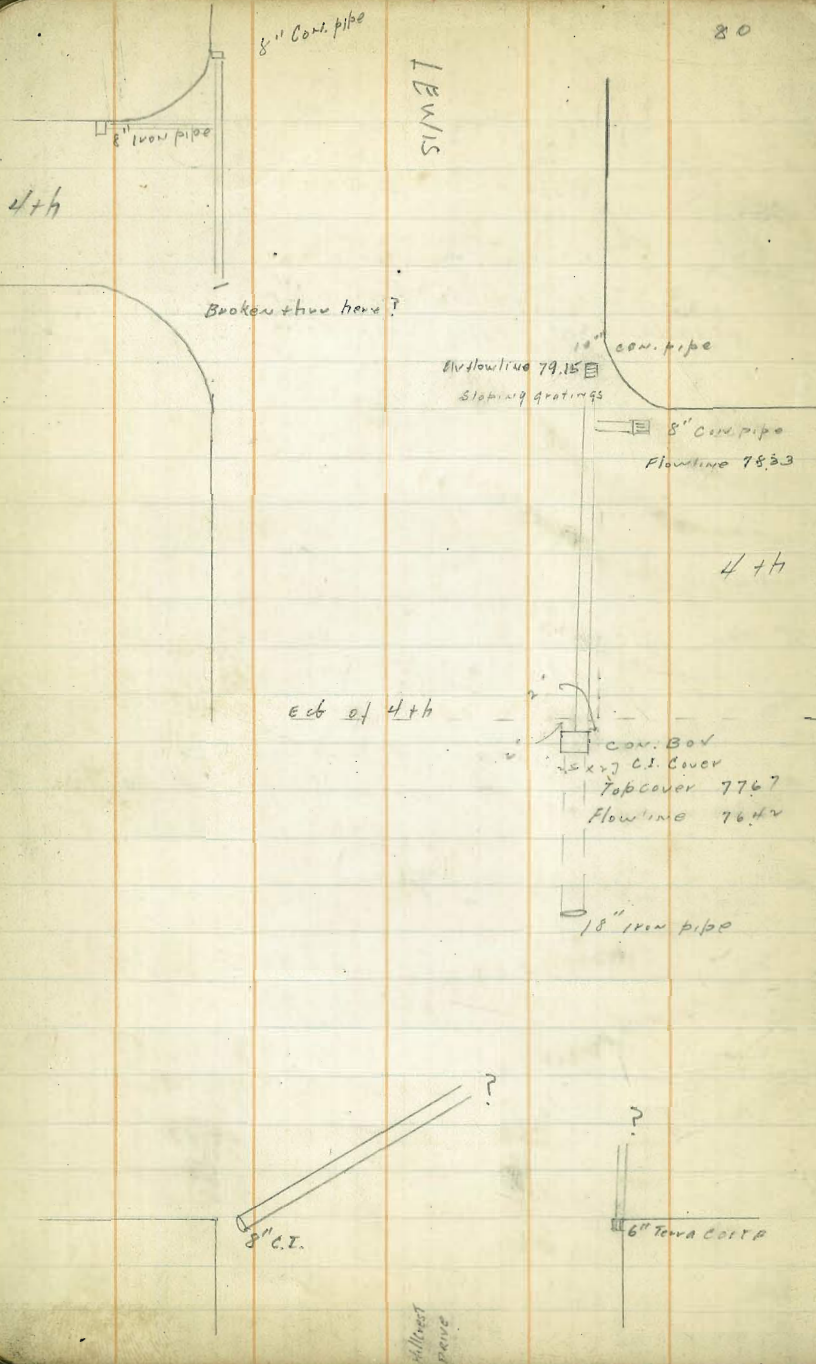 80
8" Con. pipe
LEWIS
8" Iron pipe
4th
Broken thru here ?
10" con. pipe
flowline 79.15
Sloping gratings
8" Con. pipe
Flowline 78.33
4th
2'
Ecb of 4th
2'
Con. Box
25 x 27 C.I. Cover
Top cover 77.67
Flowline 76.42
18" Iron pipe
?
?
8" C.I.
6" Terra Cotta
Hillcrest
DRIVE